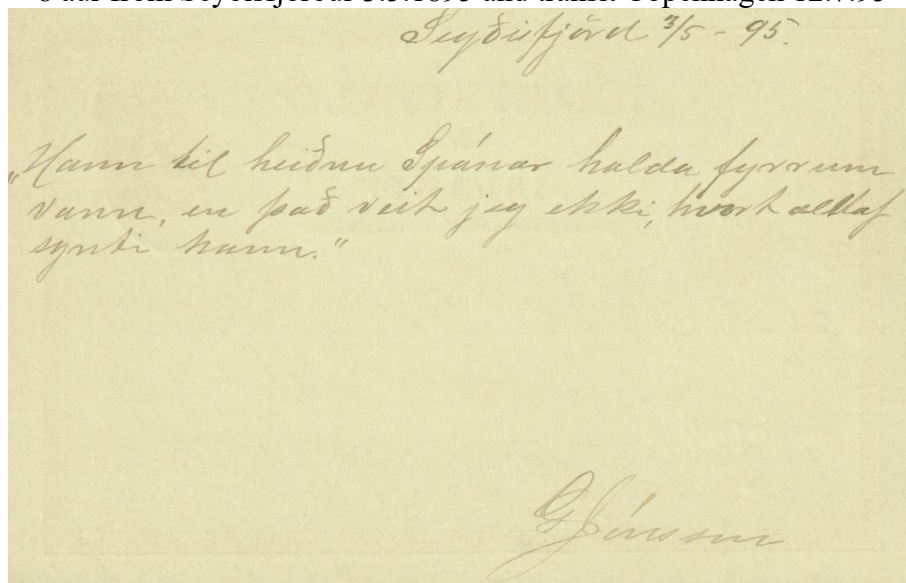 Seyðisfjörd 3/5 - 95.
„Hann til heiðnu Spánar halda fyrrum
vann, en það veit jeg ekki, hvort alltaf
synti hann."
G Jónsson